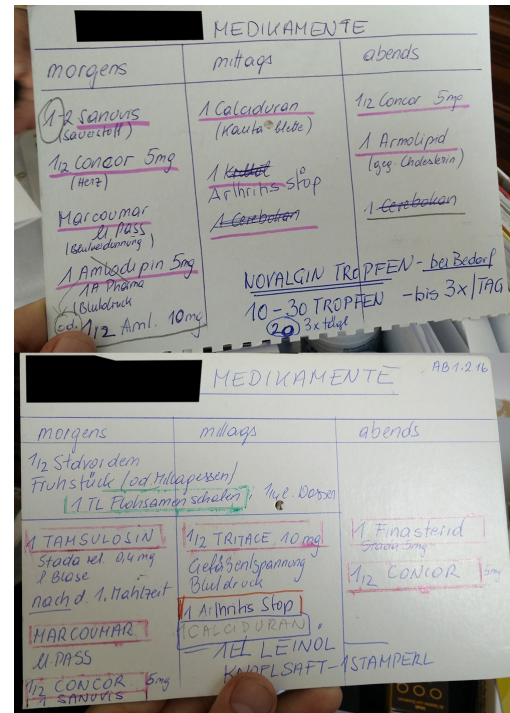 MEDIKAMENTE
morgens
mittags
abends
1-2 Sanuvis
(Sauerstoff)
1/2 Concor 5mg
(Herz)
Marcoumar
lt. PASS
(Blutverdünnung)
1 Amlodipin 5mg
1A Pharma
(Blutdruck
od. 1/2 Aml. 10mg
1 Calciduran
(Kautablette)
1
Arthritis stop
1 Cerebokan
1/2 Concor 5mg
1 Armolipid
(geg. Cholesterin)
1 Cerebokan
NOVALGIN TROPFEN - bei Bedarf
10-30 TROPFEN - bis 3x/TAG
20 3x tägl
MEDIKAMENTE
AB 1.2.16
morgens
mittags
abends
1/2 Std vor dem
Frühstück (od. Mittagessen)
1 TL Flohsamenschalen
1 TAMSULOSIN
Stada ret. 0,4mg
Blase
nach d. 1. Mahlzeit
MARCOUMAR
lt. PASS
1/2 CONCOR 5mg
1 SANUVIS
1/2 TRITACE 10 mg
Gefäßentspannung
Blutdruck
1 Arthritis Stop
1 CALCIDURAN
1 EL LEINÖL
KNOFLSAFT-1STAMPERL
1 Finasterid
Stada 5mg
1/2 CONCOR 5mg